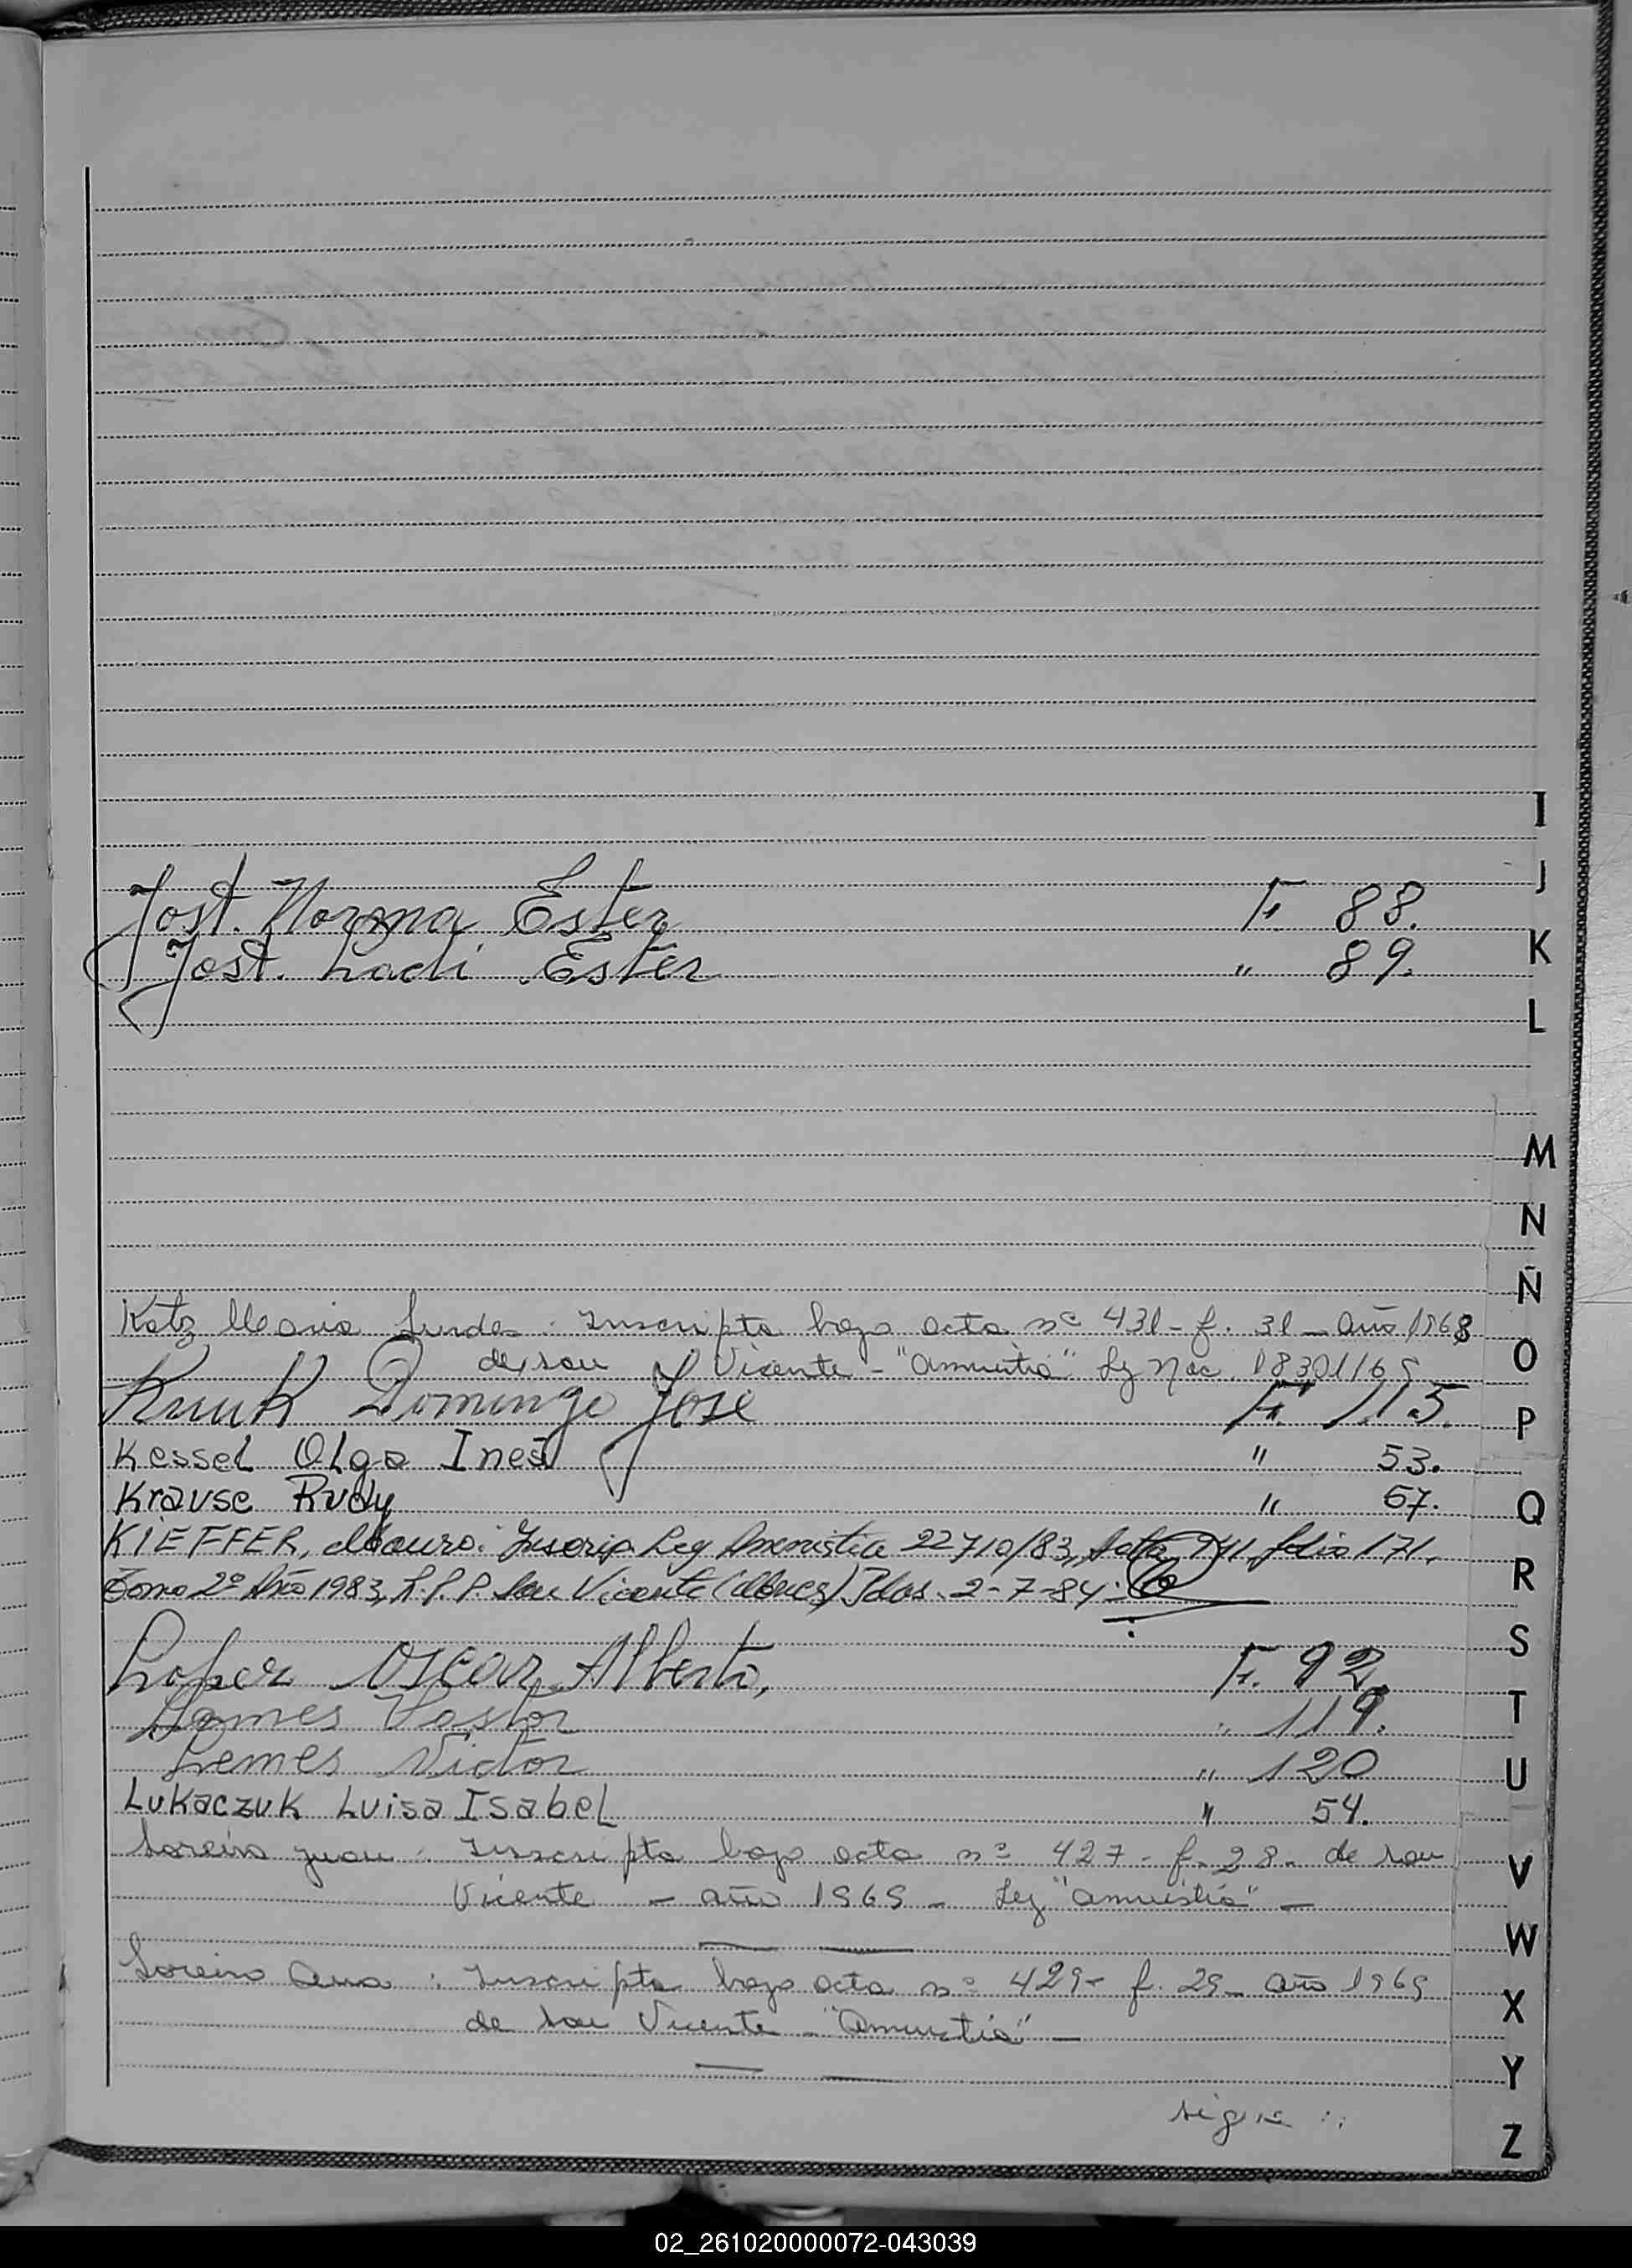 I
J
Jost. Norma Ester F. 88.
K
Jost. Ladi Ester " 89.
L
M
N
Ñ
Katz Maria Lurdes : Inscripta bajo acta nº 431 - f. 31 - año 1968
de san Vicente - "amnistia" Ley Nac. 18301/69
O
Knuk Domingo José F. 115.
P
Kessel Olga Ines " 53.
Krause Rudy " 67.
Q
KIEFFER, Mauro: Inscrip. Ley Amnistia 22710/83, Acta 741, folio 171,
R
Tomo 2º Año 1983, R.P.P. San Vicente (Mnes) Idos. 2-7-84.
S
Lopez Oscar Alberto, F. 92.
T
Lemes Pastor " 119.
Lemes Victor " 120
U
Lukaczuk Luisa Isabel " 54.
Loreiro Juan : Inscripta bajo acta nº 427 - f. 28 - de san
V
Vicente - año 1969 - Ley "amnistia" -
W
Loreiro Ana : Inscripta bajo acta nº 429 - f. 29 - año 1969
X
de san Vicente - "Amnistia" -
Y
sigue ::
Z
02_261020000072-043039